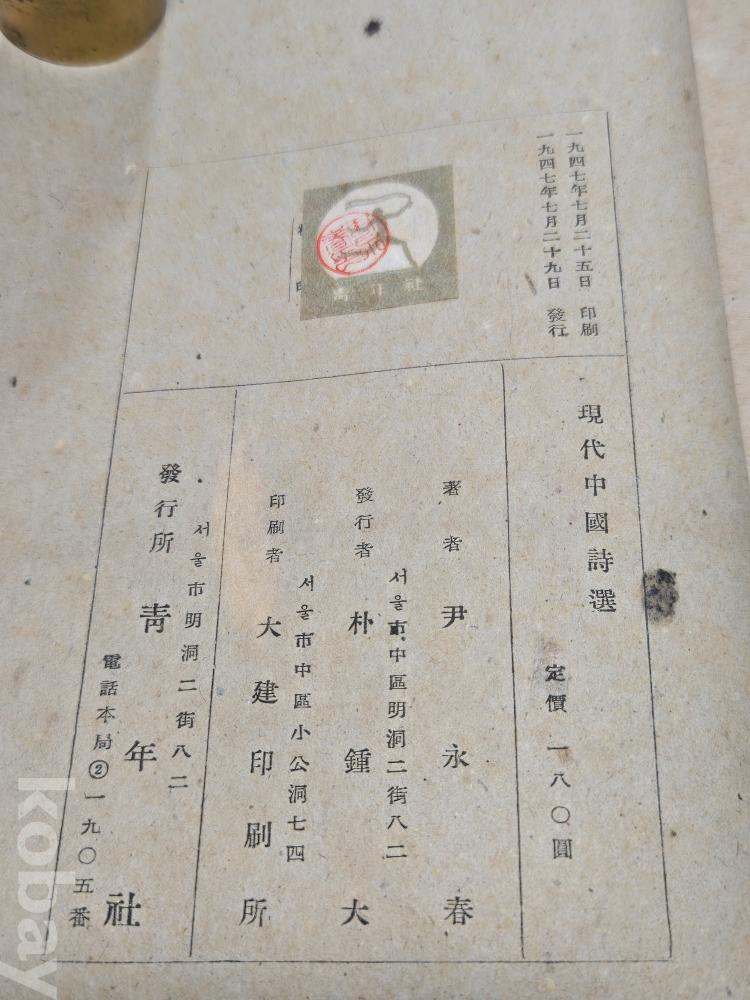 一九四七年七月二十五日 印刷
一九四七年七月二十九日 發行
社
現代中國詩選
定價 一八〇圓
著者 尹永春
서울市中區明洞二街八二
發行者 朴鍾大
서울市中區小公洞七四
印刷者 大建印刷所
서울市明洞二街八二
發行所 靑年社
電話本局②一九〇五番
kobay